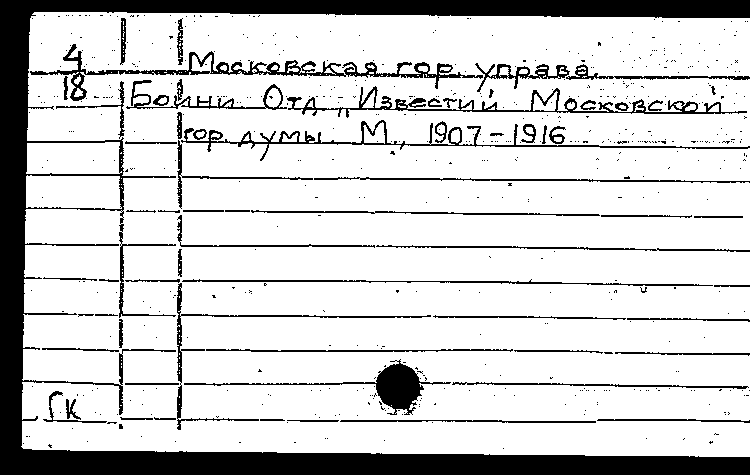 4
18
Московская гор. управа.
Бойни Отд. „Известий Московской
гор. думы. М., 1907-1916
ГК